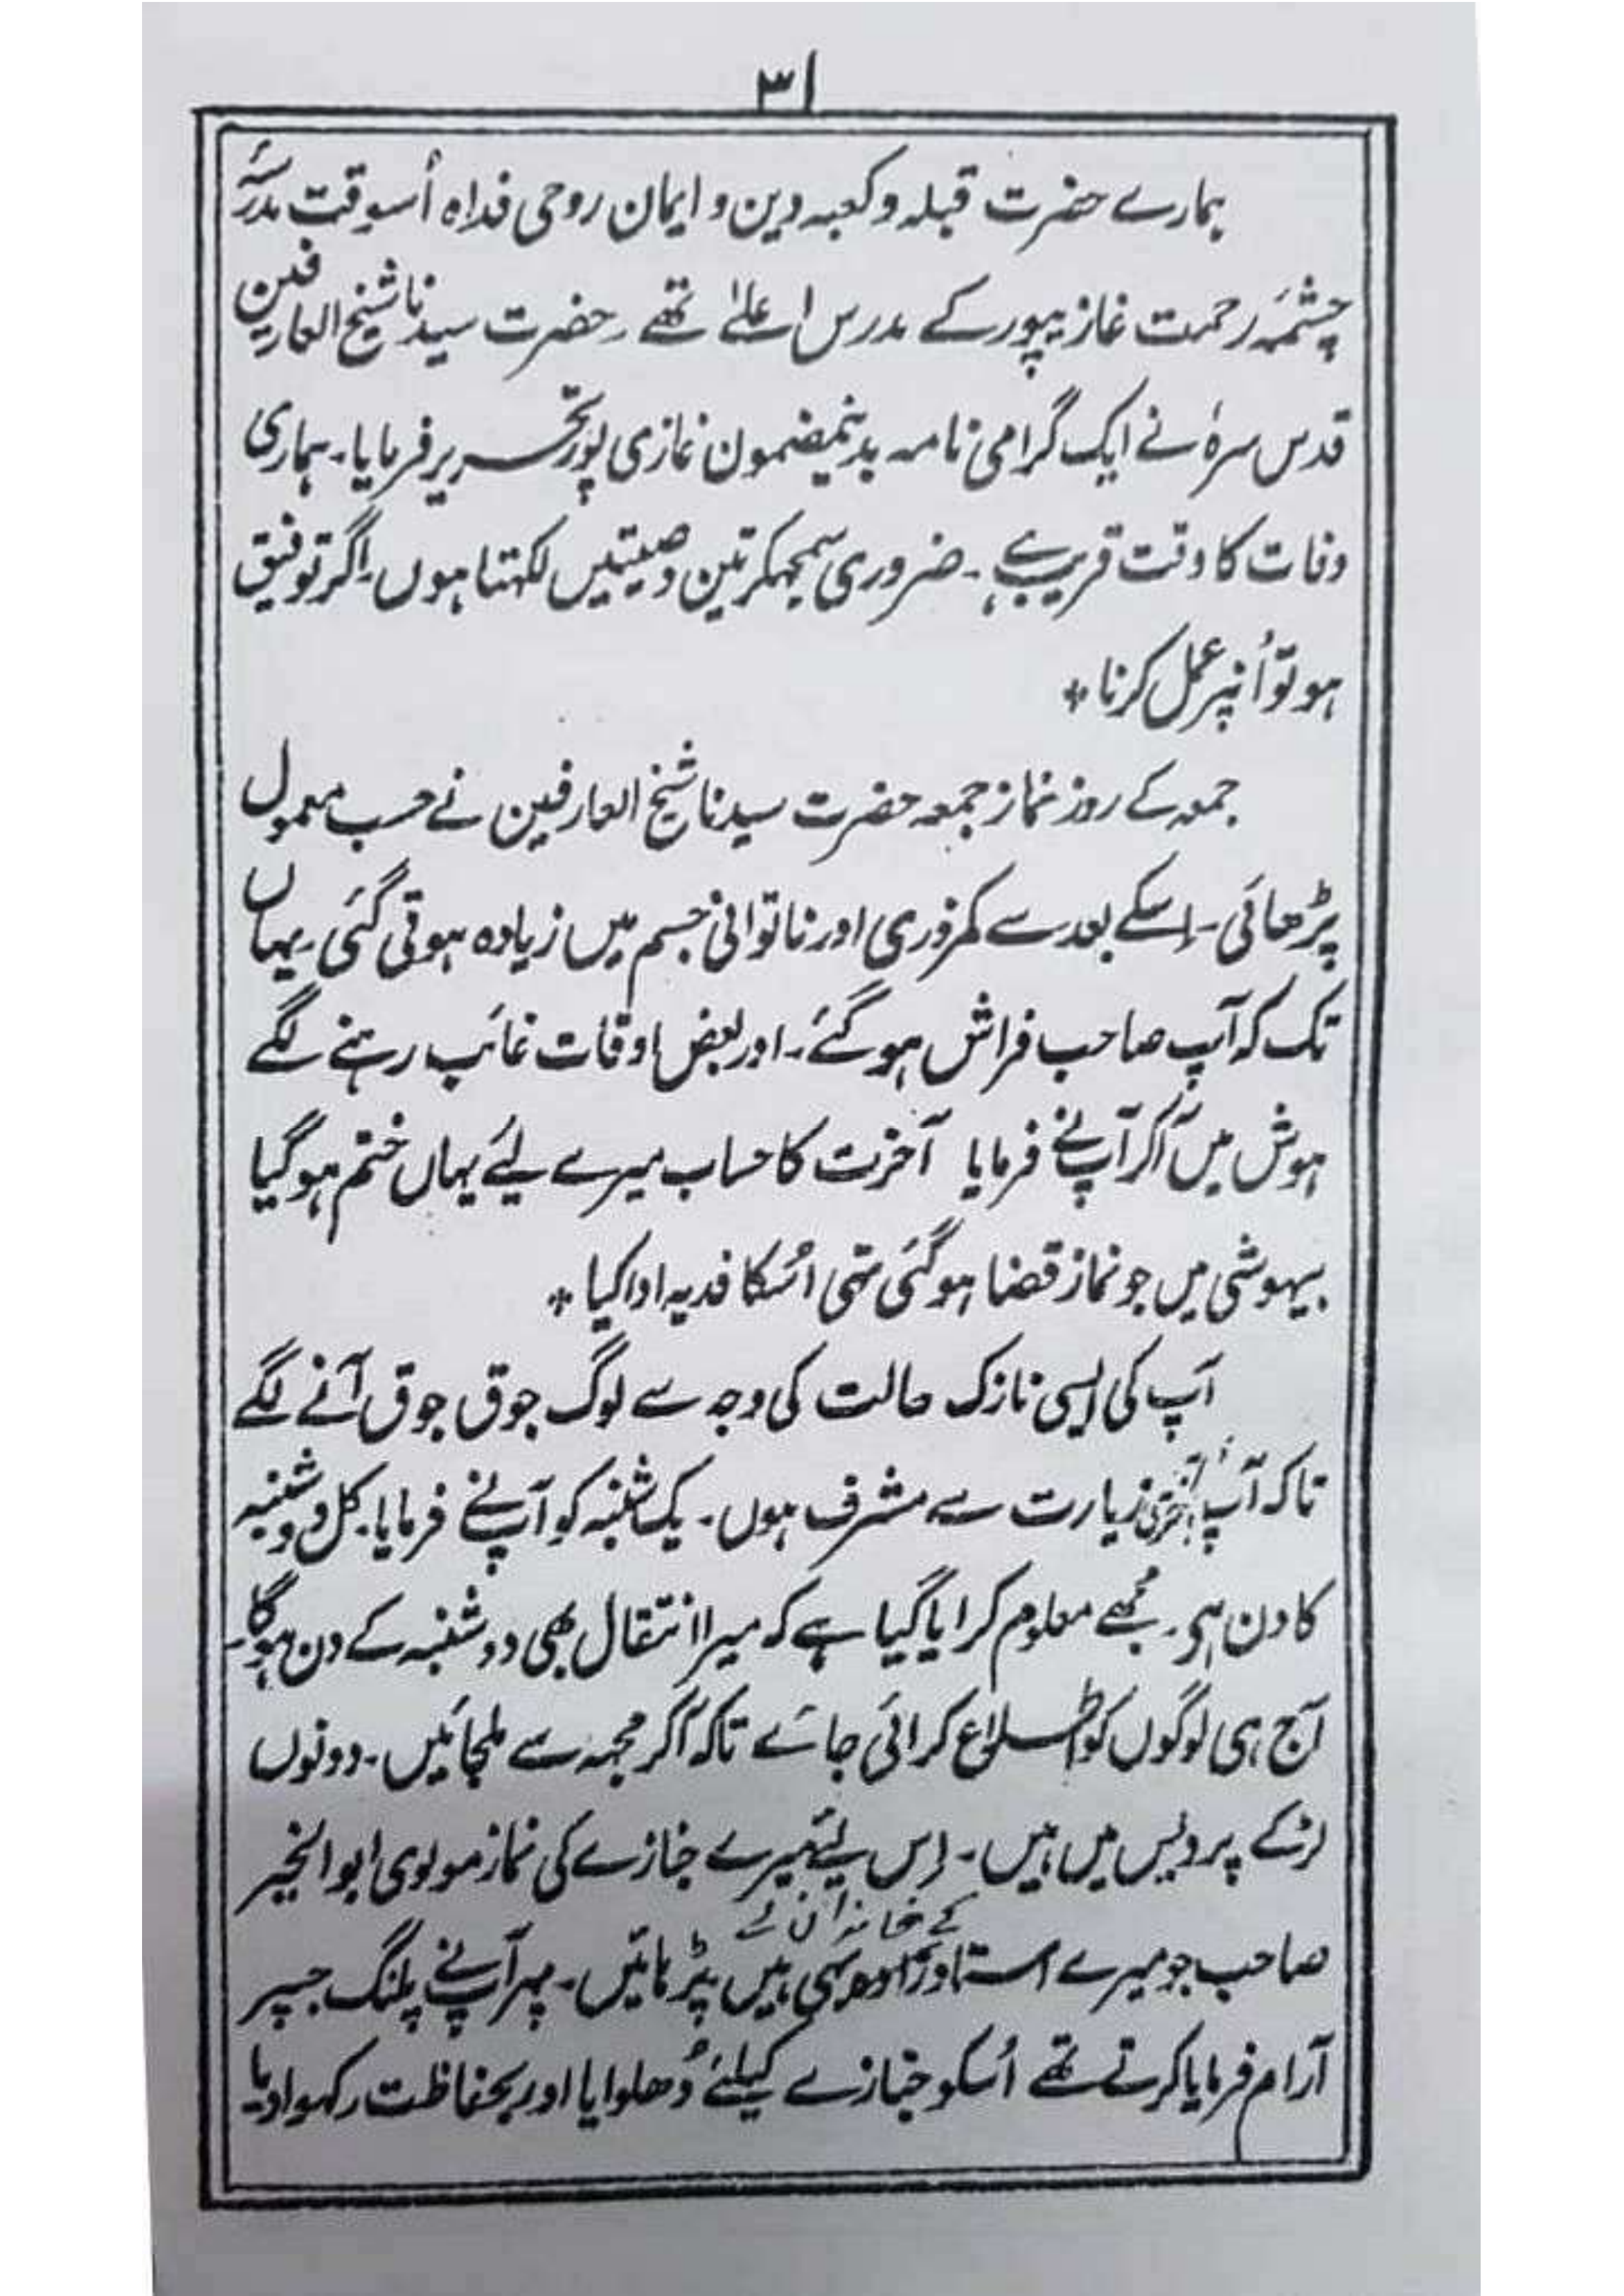 ۳۱
ہمارے حضرت قبلہ و کعبہ دین و ایمان روحی فداہ اُسوقت مدرسۂ
چشمۂ رحمت غازیپور کے مدرس اعلےٰ تھے ۔ حضرت سیدنا شیخ العارفین
قدس سرہٗ نے ایک گرامی نامہ بدینمضمون غازی پور تحریر فرمایا۔ ہماری
وفات کا وقت قریب ہے۔ ضروری سمجھکر تین وصیتیں لکھتا ہوں۔ اگر توفیق
ہو تو اُنپر عمل کرنا *
جمعہ کے روز نماز جمعہ حضرت سیدنا شیخ العارفین نے حسب معمول
پڑھائی۔ اِسکے بعد سے کمزوری اور ناتوانی جسم میں زیادہ ہوتی گئی۔ یہاں
تک کہ آپ صاحب فراش ہوگئے۔ اور بعض اوقات غائب رہنے لگے
ہوش میں آکر آپنے فرمایا آخرت کا حساب میرے لیئے یہاں ختم ہوگیا
بیہوشی میں جو نماز قضا ہوگئی تھی اُسکا فدیہ ادا کیا *
آپ کی ایسی نازک حالت کی وجہ سے لوگ جوق جوق آنے لگے
تاکہ آپ آخری زیارت سے مشرف ہوں۔ یک شنبہ کو آپنے فرمایا۔ کل دوشنبہ
کا دن ہی۔ مجھے معلوم کرایا گیا ہے کہ میرا انتقال بھی دوشنبہ کے دن ہوگا۔
آج ہی لوگوں کو اطلاع کرائی جائے تاکہ آکر مجھہ سے ملجائیں۔ دونوں
لڑکے پردیس میں ہیں۔ اِس لیئے میرے جنازے کی نماز مولوی ابوالخیر
کے خاندان سے
صاحب جو میرے استاد ہیں پڑہائیں۔ پہر آپنے پلنگ جسپر
آرام فرمایا کرتے تھے اُسکو جنازے کیلئے دُھلوایا اور بحفاظت رکہوادیا